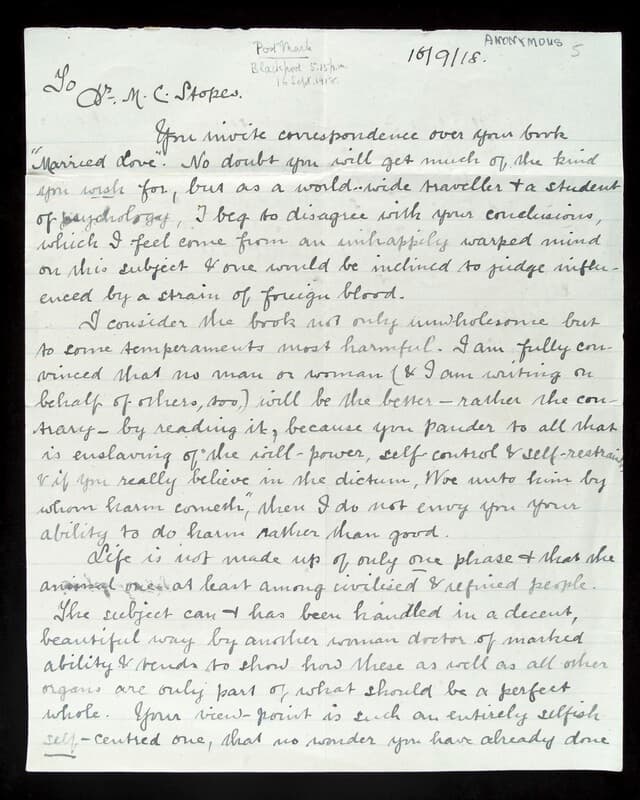 ANONYMOUS
5
Post Mark
Blackpool 5.15pm
16 Sept. 1918.
16/9/18.
To
Dr. M. C. Stopes.
You invite correspondence over your book
"Married Love". No doubt you will get much of the kind
you wish for, but as a world-wide traveller & a student
of psychology, I beg to disagree with your conclusions,
which I feel come from an unhappily warped mind
on this subject & one would be inclined to judge influ-
enced by a strain of foreign blood.
I consider the book not only unwholesome but
to some temperaments most harmful. I am fully con-
vinced that no man or woman (& I am writing on
behalf of others, too,) will be the better – rather the con-
trary – by reading it, because you pander to all that
is enslaving of the will-power, self control & self-restraint,
& if you really believe in the dictum, "Woe unto him by
whom harm cometh," then I do not envy you your
ability to do harm rather than good.
Life is not made up of only one phase & that the
animal one at least among civilised & refined people.
The subject can & has been handled in a decent,
beautiful way by another woman doctor of marked
ability & tends to show how these as well as all other
organs are only part of what should be a perfect
whole. Your view-point is such an entirely selfish
self-centred one, that no wonder you have already done